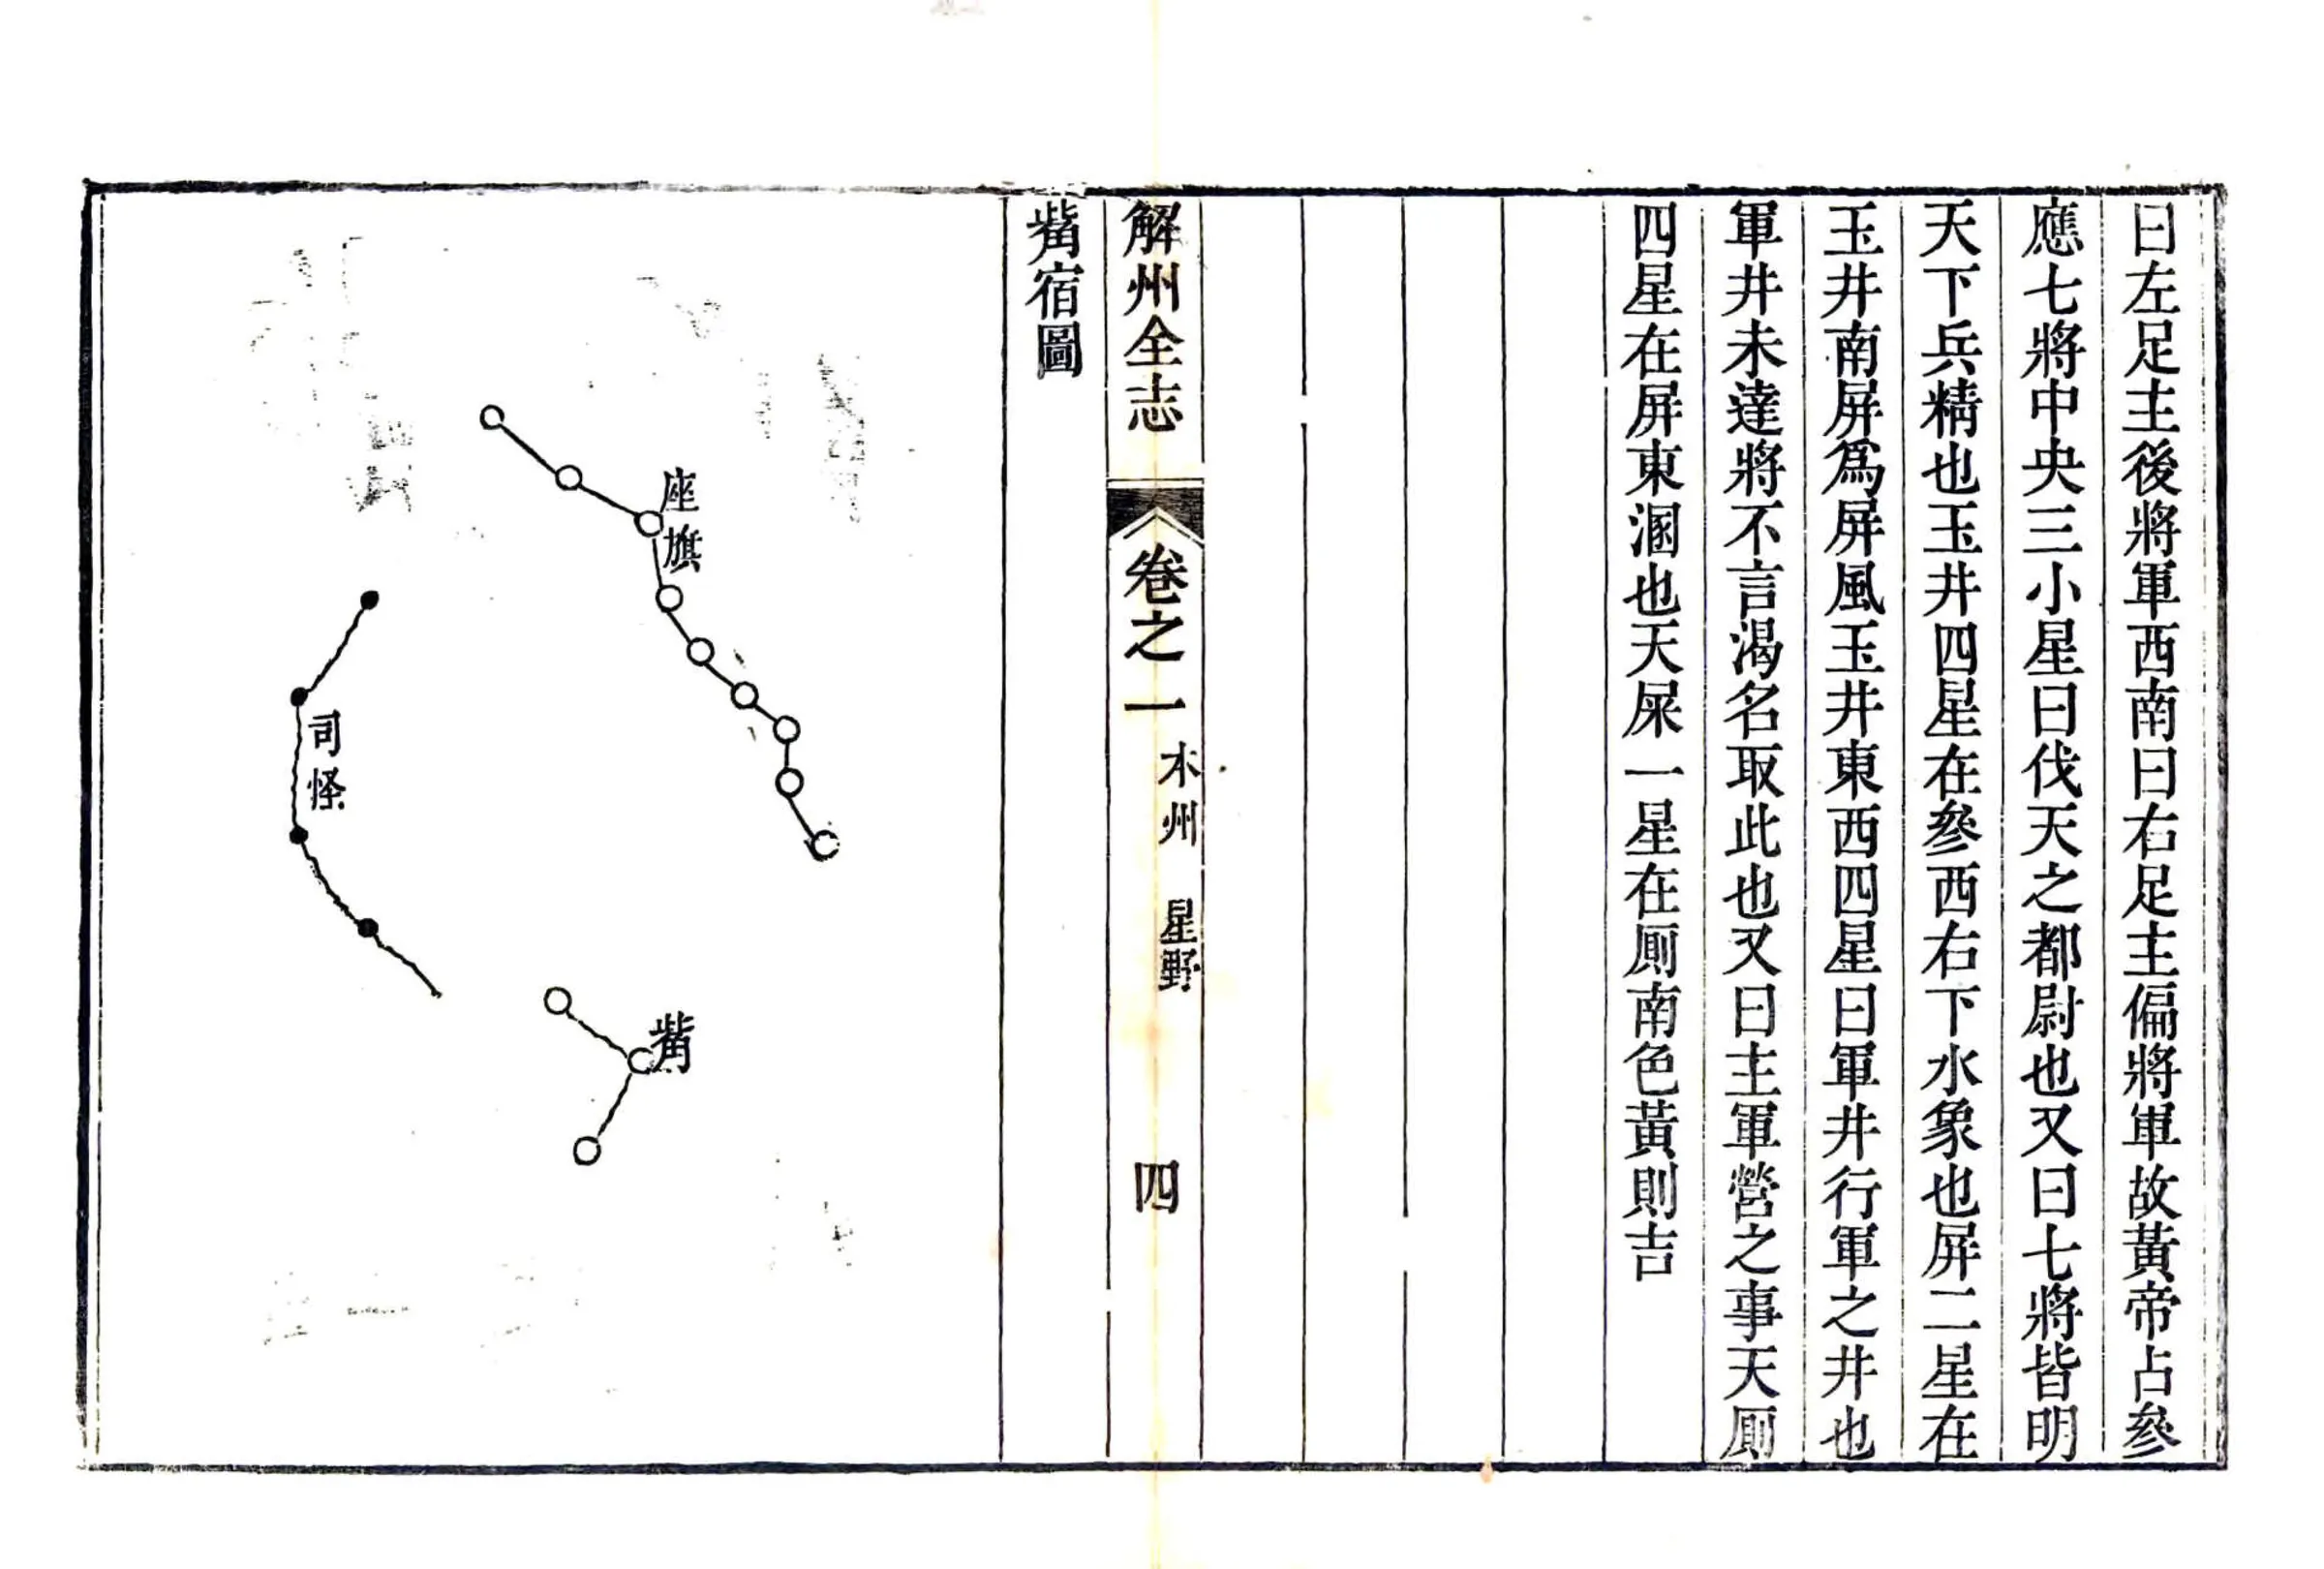 曰左足主後將軍西南曰右足主偏將軍故黃帝占參
應七將中央三小星曰伐天之都尉也又曰七將皆明
天下兵精也玉井四星在參西右下水象也屏二星在
玉井南屏爲屏風玉井東西四星曰軍井行軍之井也
軍井未達將不言渴名取此也又曰主軍營之事天厠
四星在屏東溷也天屎一星在厠南色黃則吉
解州全志
卷之一
本州 星野
四
觜宿圖
座旗
司怪
觜